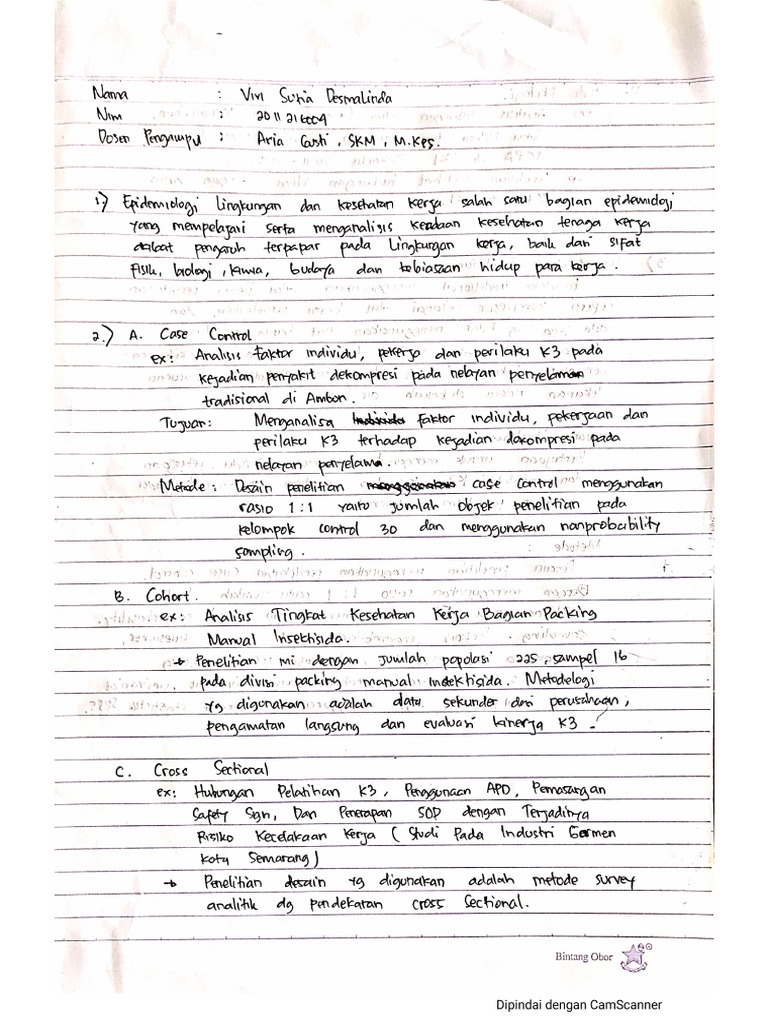 Nama : Vivi Surya Desmalinda
Nim : 2011216009
Dosen Pengampu : Aria Gusti, SKM, M.Kes.
1.) Epidemiologi Lingkungan dan kesehatan kerja salah satu bagian epidemiologi
yang mempelajari serta menganalisis keadaan kesehatan tenaga kerja
akibat pengaruh terpapar pada Lingkungan kerja, baik dari sifat
fisik, biologi, kimia, budaya dan kebiasaan hidup para kerja.
2.) A. Case Control
ex: Analisis faktor individu, pekerja dan perilaku K3 pada
kejadian penyakit dekompresi pada nelayan penyelaman
tradisional di Ambon.
Tujuan: Menganalisa faktor individu, pekerjaan dan
perilaku K3 terhadap kejadian dekompresi pada
nelayan penyelam.
Metode: Desain penelitian case control menggunakan
rasio 1:1 yaitu jumlah objek penelitian pada
kelompok control 30 dan menggunakan nonprobability
sampling.
B. Cohort.
ex: Analisis Tingkat Kesehatan Kerja Bagian Packing
Manual Insektisida.
→ Penelitian ini dengan jumlah populasi 225, sampel 16
pada divisi packing manual insektisida. Metodelogi
yg digunakan adalah data sekunder dari perusahaan,
pengamatan langsung dan evaluasi kinerja K3.
C. Cross Sectional
ex: Hubungan Pelatihan K3, Penggunaan APD, Pemasangan
Safety Sign, Dan Penerapan SOP dengan Terjadinya
Risiko Kecelakaan Kerja (Studi Pada Industri Garmen
Kota Semarang)
→ Penelitian desain yg digunakan adalah metode survey
analitik dg pendekatan cross Sectional.
Bintang Obor
Dipindai dengan CamScanner